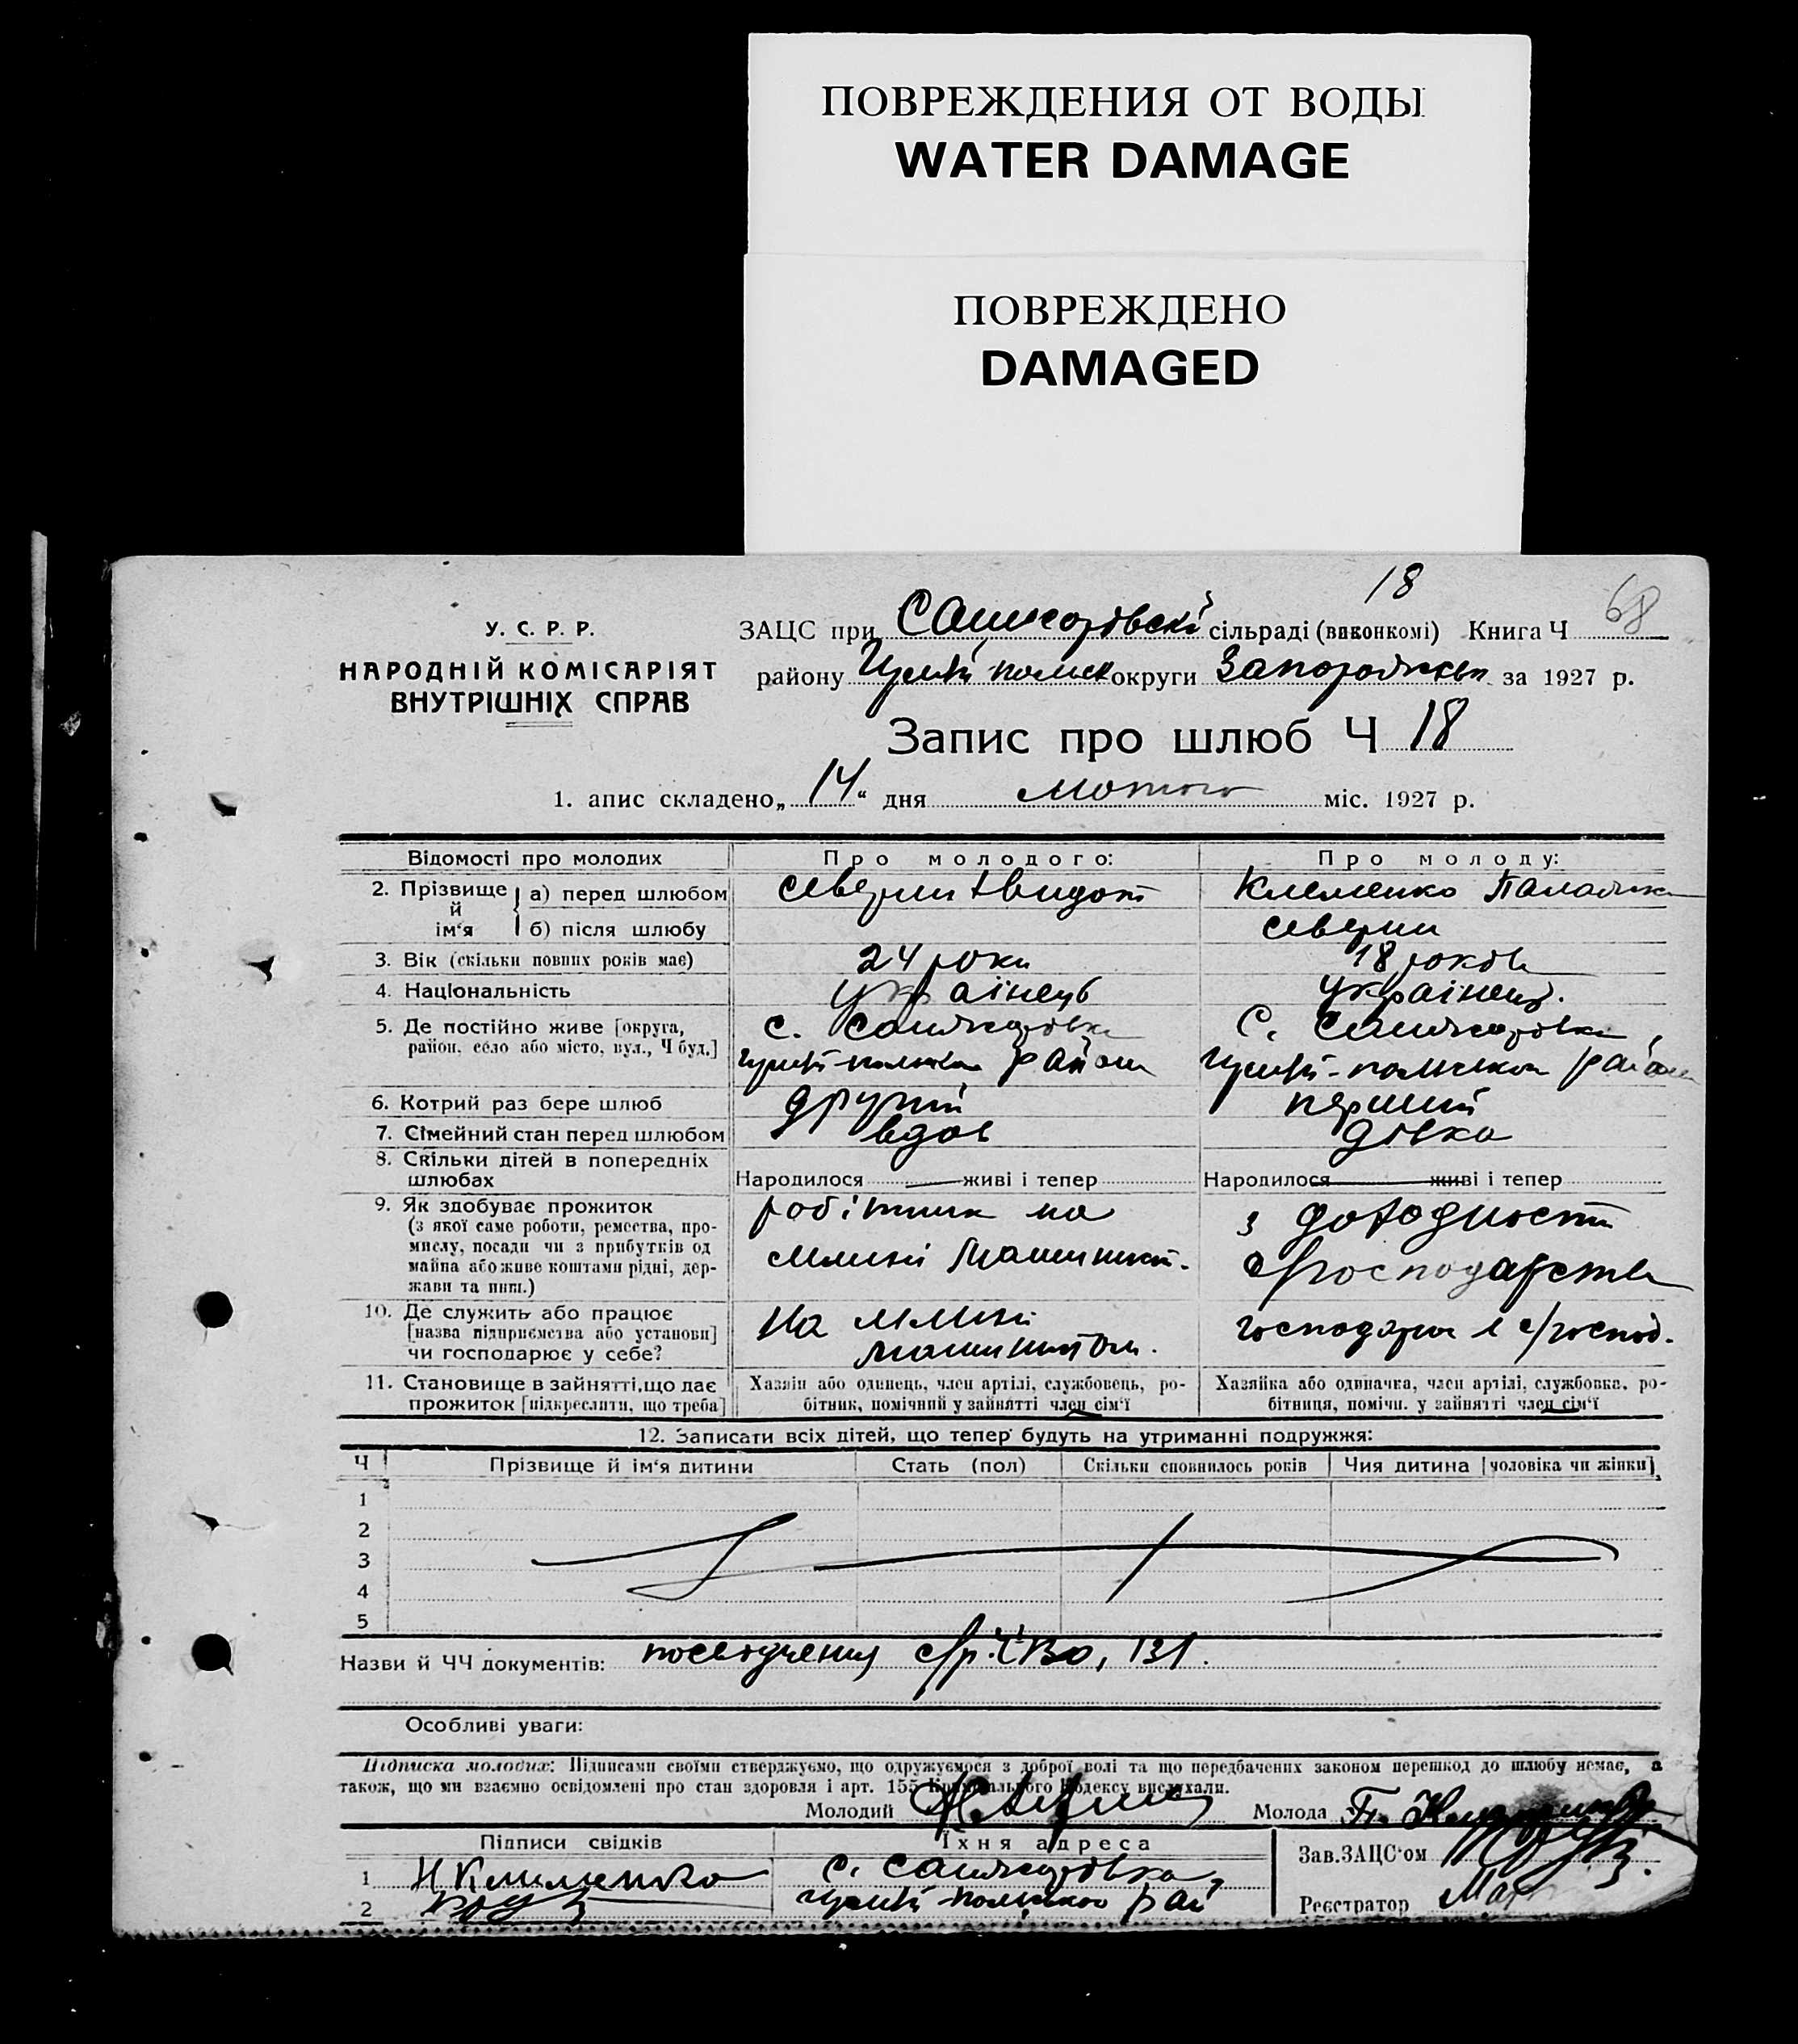 ПОВРЕЖДЕНИЯ ОТ ВОДЫ
WATER DAMAGE
ПОВРЕЖДЕНО
DAMAGED
18
68
У. С. Р. Р.
НАРОДНІЙ КОМІСАРІЯТ
ВНУТРІШНІХ СПРАВ
ЗАЦС при сільраді (виконкомі) Книга Ч
району округи за 1927 р.
Запис про шлюб Ч 18
1. апис складено „14“ дня лютого міс. 1927 р.
Відомості про молодих Про молодого: Про молоду:
2. Прізвище й ім'я а) перед шлюбом Северин Клеменко
б) після шлюбу Северин
3. Вік (скільки повних років має) 24 роки 18 років
4. Національність українець українец.
5. Де постійно живе [округа, с. Санжарівка С. Санжарівка
район, село або місто, вул., Ч буд.] район район
6. Котрий раз бере шлюб другий перший
7. Сімейний стан перед шлюбом вдов дівка
8. Скільки дітей в попередніх
шлюбах Народилося — живі і тепер Народилося — живі і тепер
9. Як здобуває прожиток робітник на з доходности
(з якої саме роботи, ремества, про-
мислу, посади чи з прибутків од млині с/господарства
майна або живе коштами рідні, дер-
жави та инш.)
10. Де служить або працює На млині господарка
[назва підприємства або установи] машинистом.
чи господарює у себе?
11. Становище в зайнятті, що дає Хазяїн або одинець, член артілі, службовець, ро- Хазяйка або одиначка, член артілі, службовка, ро-
прожиток [підкреслити, що треба] бітник, помічний у зайнятті член сім'ї бітниця, помічн. у зайнятті член сім'ї
12. Записати всіх дітей, що тепер будуть на утриманні подружжя:
Ч Прізвище й ім'я дитини Стать (пол) Скільки сповнилось років Чия дитина [чоловіка чи жінки]
1
2
3
4
5
Назви й ЧЧ документів: посвідчення 131.
Особливі уваги:
Підписка молодих: Підписами своїми стверджуємо, що одружуємося з доброї волі та що передбачених законом перешкод до шлюбу немає, а
також, що ми взаємно освідомлені про стан здоровля і арт. 155 Кримінального Кодексу вислухали.
Молодий Молода
Підписи свідків Їхня адреса Зав.ЗАЦС'ом
1 Н Клименко С. Санжарівка,
2 рай Реєстратор